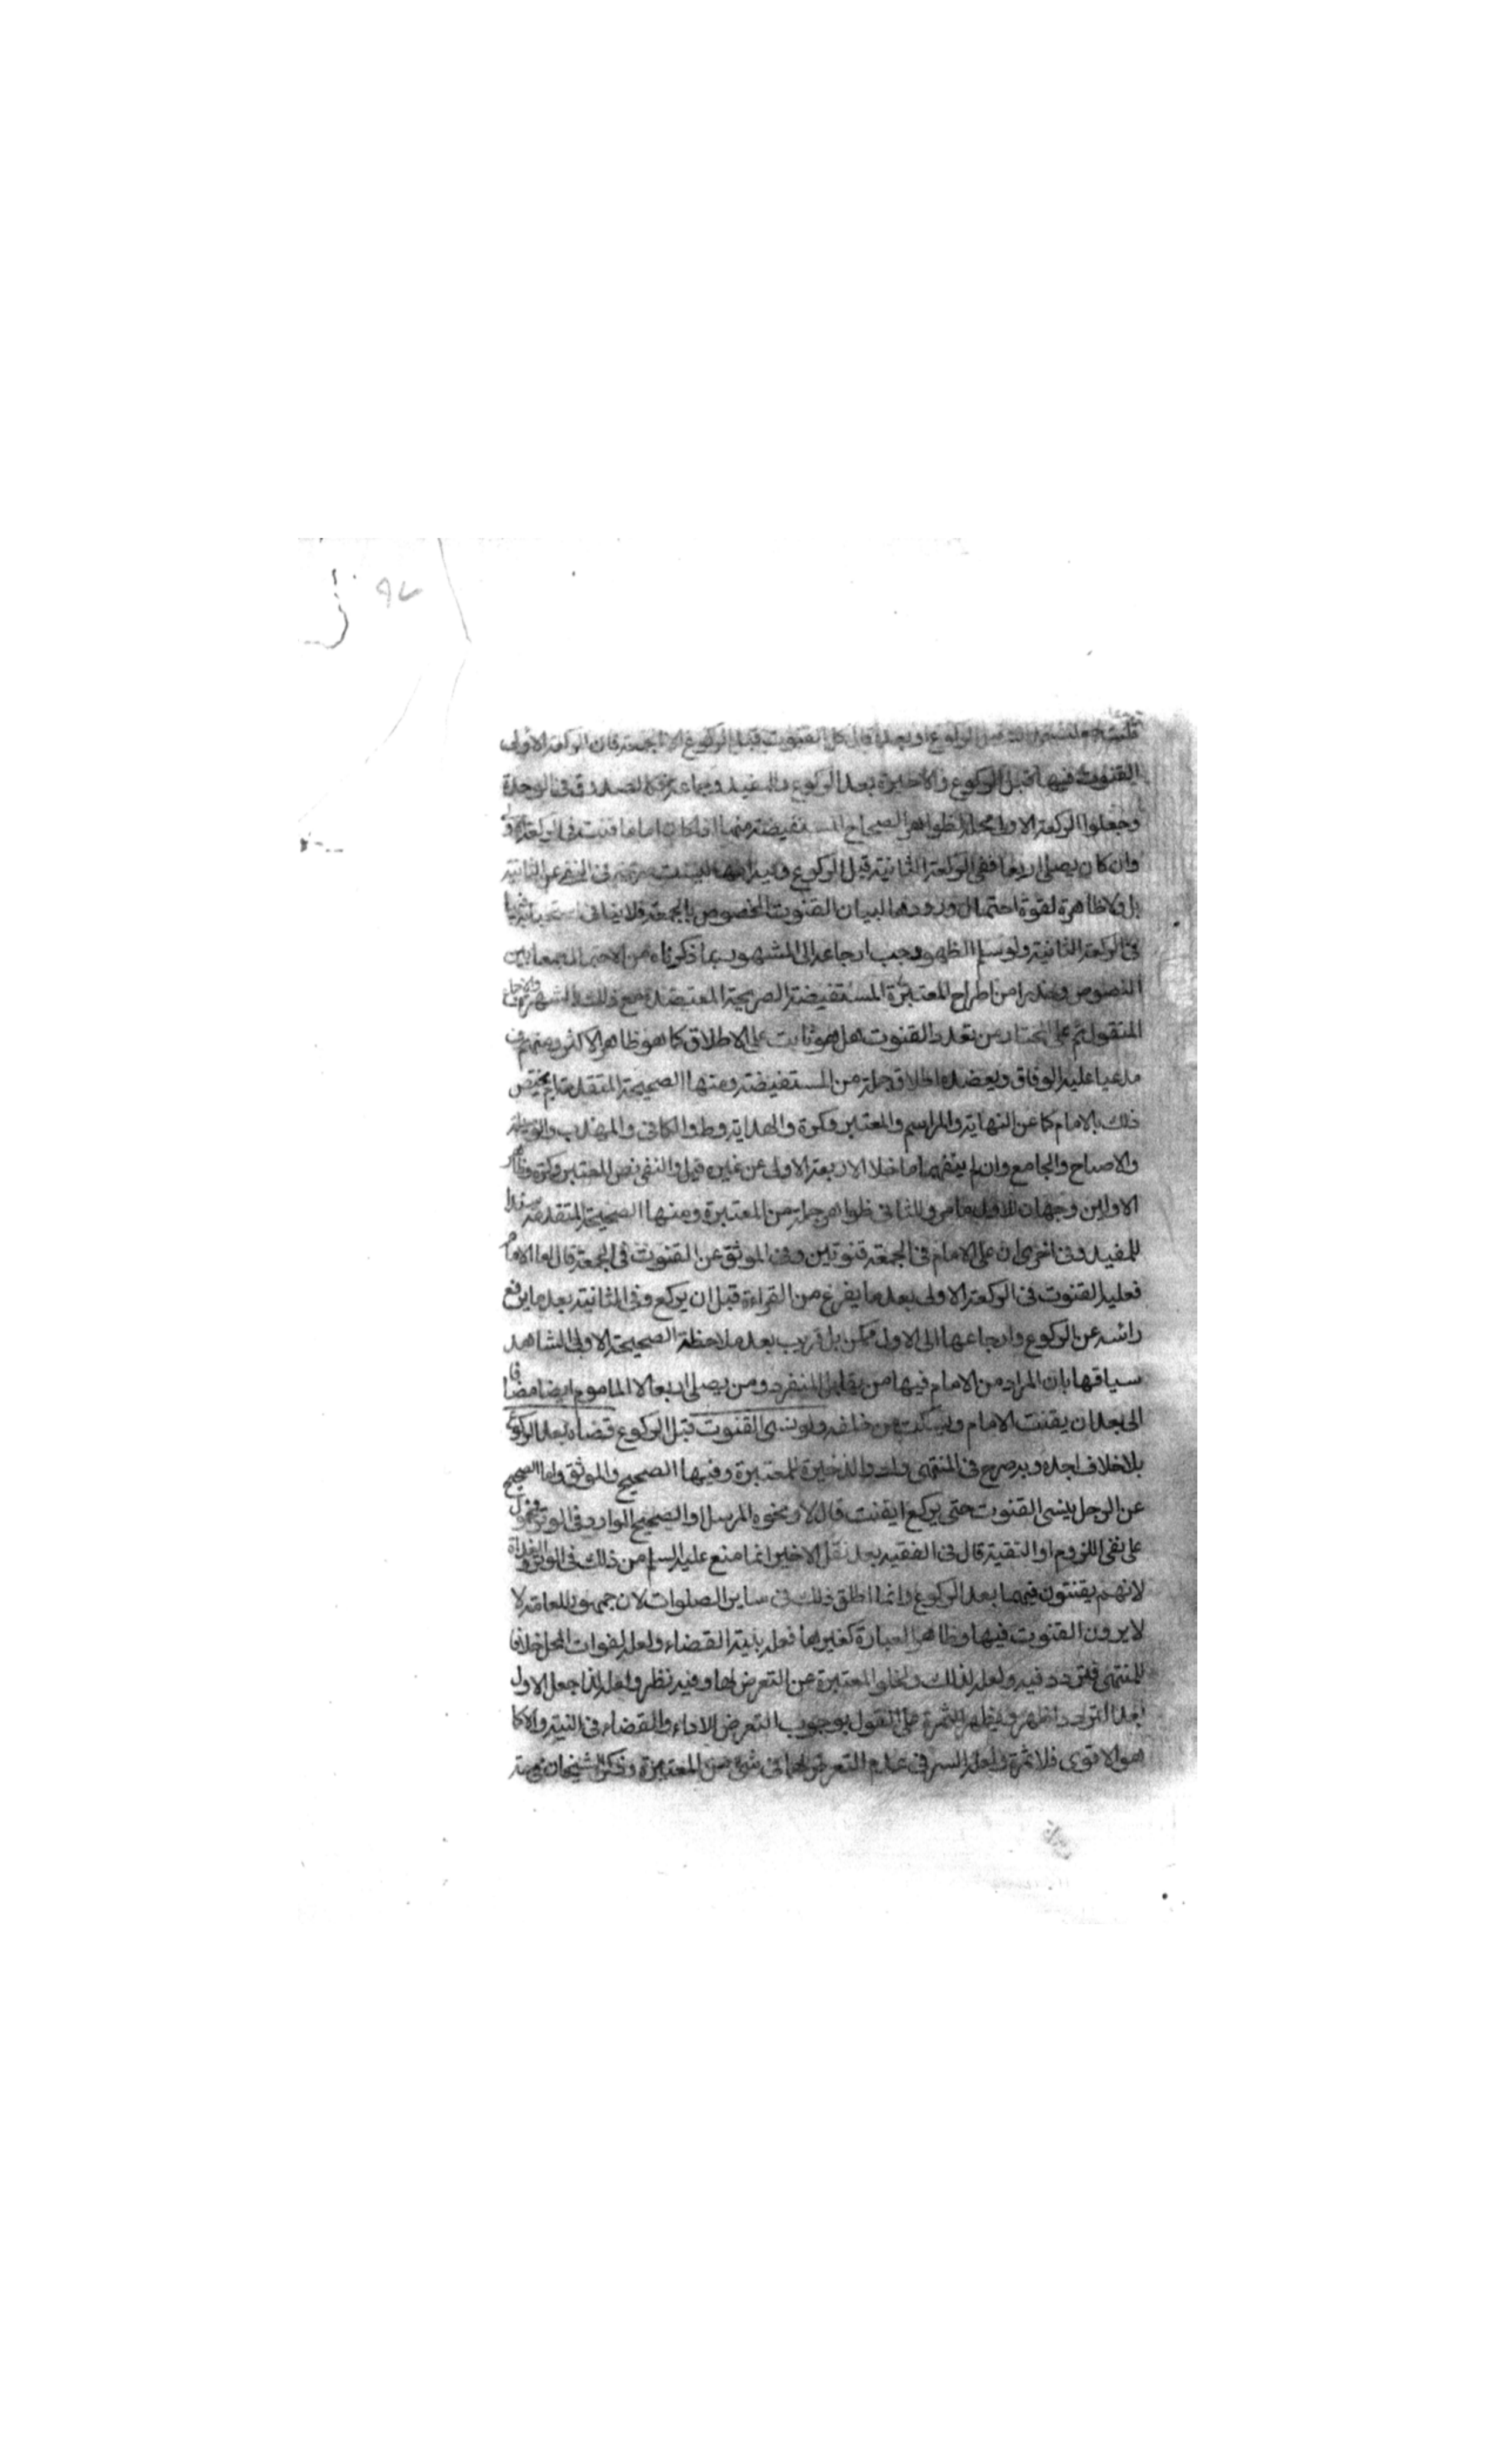 قبل الركوع او بعده قال كل القنوت قبل الركوع الا الجمعة فان الركعة الاولى
القنوت فيها قبل الركوع والاخيرة بعد الركوع والمفيد وجماعة فكالصدوق في الوحدة
وجعلوا الركعة الاولى محله لظواهر الصحاح المستفيضة منها اذا كان اماما قنت في الركعة الاولى
وان كان يصلي اربعا ففي الركعة الثانية قبل الركوع وفيه انها ليست صريحة في النفي عن الثانية
بل ولا ظاهرة لقوة احتمال ورودها لبيان القنوت المخصوص بالجمعة فلا ينافي
في الركعة الثانية ولو سلم الظهور وجب ارجاعه الى المشهور بما ذكرناه من الاحتمال جمعا بين
النصوص وحذرا من اطراح المعتبرة المستفيضة الصريحة المعتضدة مع ذلك بالشهرة والاجماع
المنقول ثم على المختار من تعدد القنوت هل هو ثابت على الاطلاق كما هو ظاهر الاكثر ومنهم ف
مدعيا عليه الوفاق ويعضده اطلاق جملة من المستفيضة ومنها الصحيحة المتقدمة ام يختص
ذلك بالامام كما عن النهاية والمراسم والمعتبر وكرة والهداية وط والكافي والمهذب والوسيلة
والاصباح والجامع وان لم ينفهما ما خلا الاربعة الاولى عن غيره قيل والنفي نص المعتبر وكرة وظاهر
الاولين وجهان للاول ما مر وللثاني ظواهر جملة من المعتبرة ومنها الصحيحة المتقدمة سندا
للمفيد وفي اخرى ان على الامام في الجمعة قنوتين وفي الموثق عن القنوت في الجمعة قال اما الامام
فعليه القنوت في الركعة الاولى بعد ما يفرغ من القراءة قبل ان يركع وفي الثانية بعد ما يرفع
راسه عن الركوع وارجاعها الى الاول ممكن بل قريب بعد ملاحظة الصحيحة الاولى الشاهد
سياقها بان المراد من الامام فيها من يقابل المنفرد ومن يصلي اربعا لا الماموم ايضا مضافا
الى بعد ان يقنت الامام ويسكت من خلفه ولو نسي القنوت قبل الركوع قضاه بعد الركوع
بلا خلاف اجده وبه صرح في المنتهى وك والذخيرة للمعتبرة وفيها الصحيح والموثق واما الصحيح
عن الرجل ينسى القنوت حتى يركع ايقنت قال لا ونحوه المرسل او الصحيح الوارد في الوتر فمحمول
على نفي اللزوم او التقية قال في الفقيه بعد نقل الاخير انما منع عليه السلم من ذلك في الوتر والغداة
لانهم يقنتون فيهما بعد الركوع وانما اطلق ذلك في ساير الصلوات لان جمهور العامة لا
لا يرون القنوت فيها وظاهر العبارة كغيرها فعله بنية القضاء ولعله لفوات المحل خلافا
للمنتهى فتردد فيه ولعله لذلك ولخلو المعتبرة عن التعرض لها وفيه نظر ولعله لذا جعل الاول
بعد التردد اظهر ويظهر الثمرة على القول بوجوب التعرض للاداء والقضاء في النية والا كما
هو الاقوى فلا ثمرة ولعله السر في عدم التعرض لهما في شئ من المعتبرة وذكر الشيخان